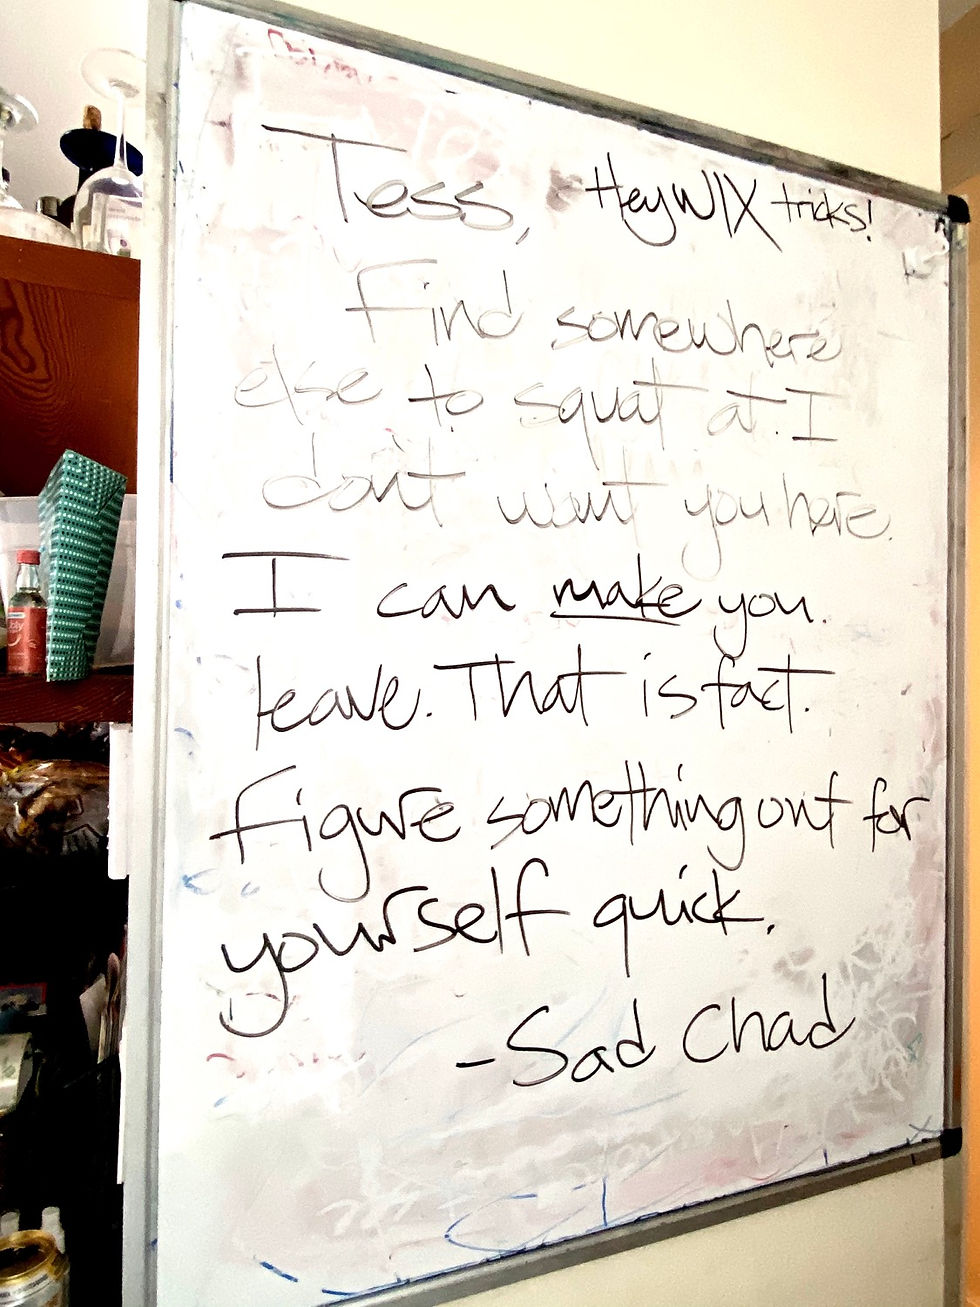 Tess, Hey WIX tricks!
Find somewhere
else to squat at. I
don't want you here.
I can make you
leave. That is fact.
Figure something out for
yourself quick.
-Sad Chad